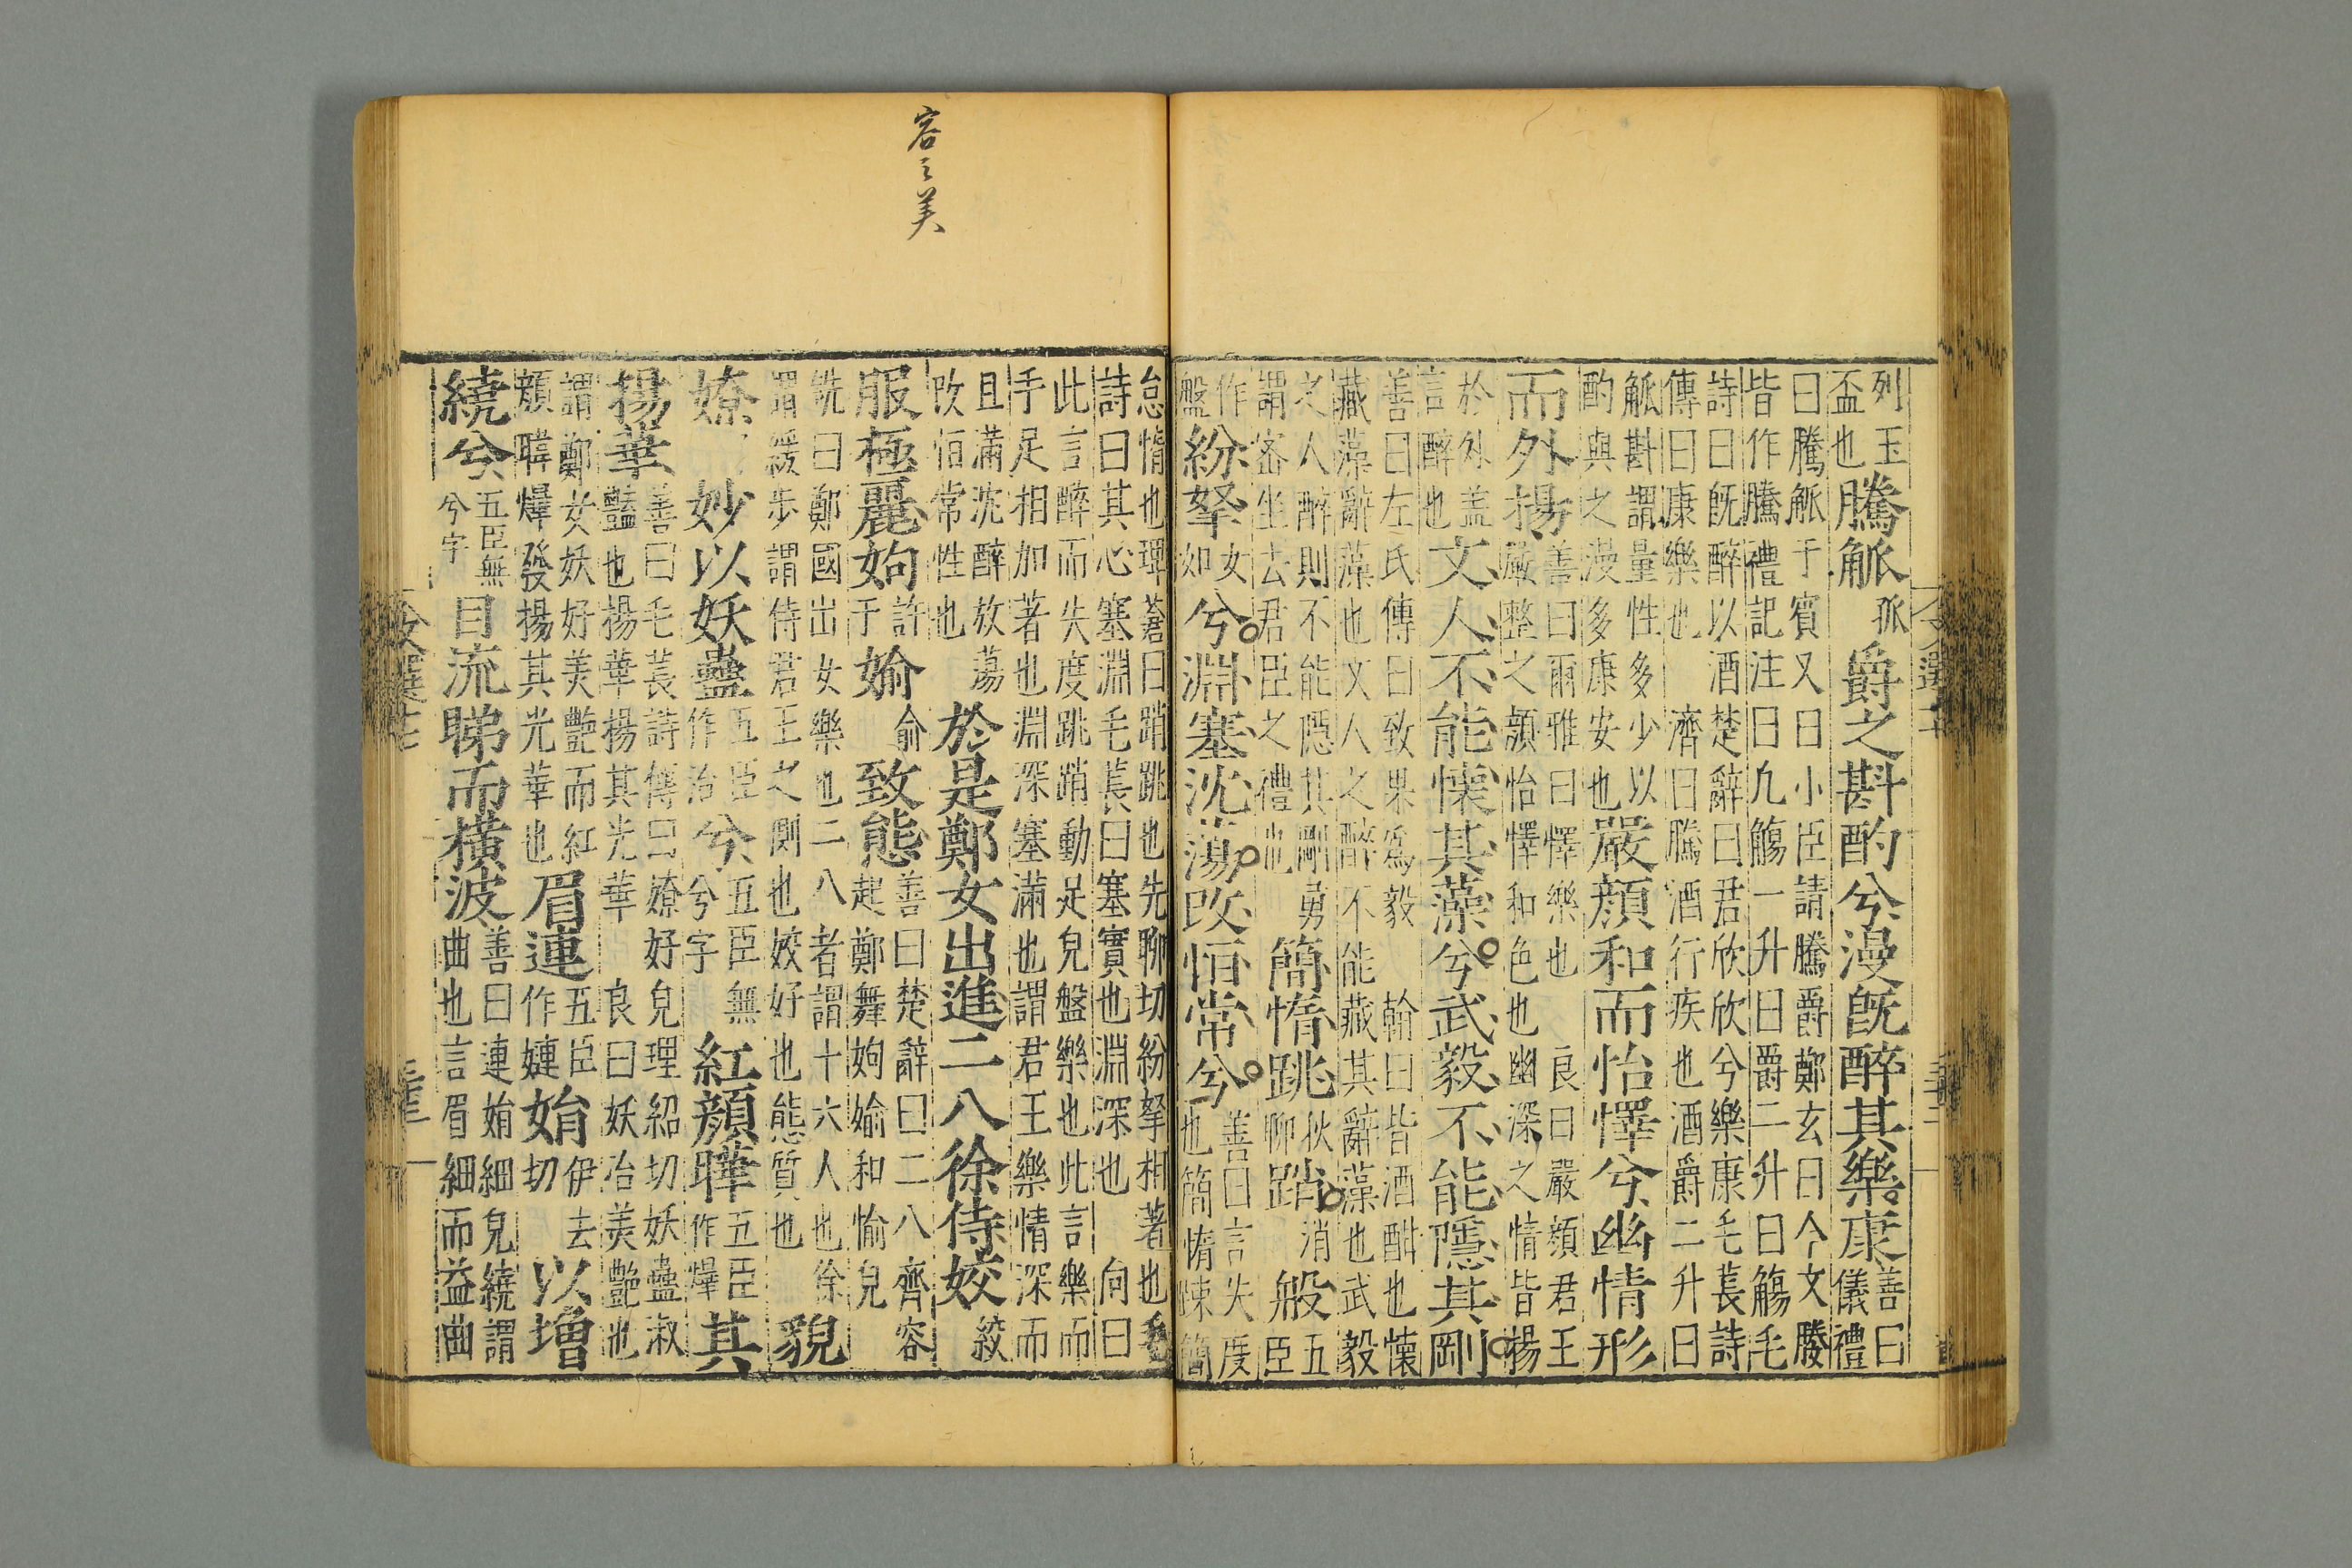 列玉
盃也騰觚孤爵之斟酌兮漫既醉其樂康善曰儀禮
曰騰觚于賓又曰小臣請騰爵鄭玄曰今文騰
皆作騰禮記注曰凡觴一升曰爵二升曰觴毛
詩曰既醉以酒楚辭曰君欣欣兮樂康毛萇詩
傳曰康樂也濟曰騰酒行疾也酒爵二升曰
觚斟謂量性多少以
酌與之漫多康安也嚴顏和而怡懌兮幽情形
而外揚善曰爾雅曰懌樂也良曰嚴顏君王
嚴整之顏怡懌和色也幽深之情皆揚
於外蓋
言醉也文人不能懷其藻兮武毅不能隱其剛
善曰左氏傳曰致果為毅翰曰皆酒酣也懷
藏藻辭藻也文人之醉不能藏其辭藻也武毅
之人醉則不能隱其剛勇
謂落坐去君臣之禮也簡惰跳狄聊踃消般五臣
作盤紛挐女如兮淵塞沈蕩改恒常兮善曰言失度也簡惰疎簡
怠惰也琿蒼曰踃跳也先聊切紛挐相著也毛
詩曰其心塞淵毛萇曰塞實也淵深也向曰
此言醉而失度跳踃動足皃盤樂也此言樂而
手足相加著也淵深塞滿也謂君王樂情深而
且滿沈醉放蕩
改恒常性也於是鄭女出進二八徐侍姣絞
服極麗姁許于媮俞致態善曰楚辭曰二八齊容起鄭舞姁媮和愉皃
銑曰鄭國出女樂也二八者謂十六人也徐
謂緩步謂侍君王之側也姣好也態質也貌
嫽妙以妖蠱五臣作冶兮五臣無兮字紅顏曄五臣作爗其
揚華善曰毛萇詩傳曰嫽好皃理紹切妖蠱淑
豔也揚華揚其光華良曰妖冶美艷也
謂鄭女妖好美艷而紅
顏曄爗發揚其光華也眉連五臣作嬿娟伊去切以增
繞兮五臣無兮字目流睇而橫波善曰連娟細皃繞謂
曲也言眉細而益曲
容之美
文選